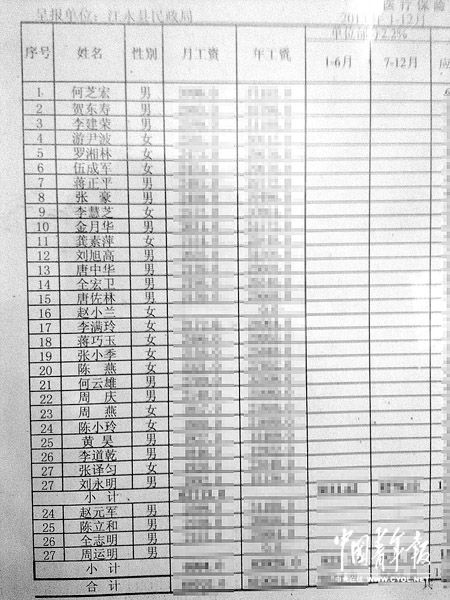 呈报单位：江永县民政局
医疗保险
年1-12月
序号 姓名 性别 月工资 年工资 单位部分2.2%
1-6月 7-12月
1 何芝宏 男
2 贺东寿 男
3 李建荣 男
4 游尹波 女
5 罗湘林 女
6 伍成军 女
7 蒋正平 男
8 张豪 男
9 李慧芝 女
10 金月华 男
11 龚素萍 女
12 刘旭高 男
13 唐中华 男
14 全宏卫 男
15 唐佐林 男
16 赵小兰 女
17 李满玲 女
18 蒋巧玉 女
19 张小季 女
20 陈燕 女
21 何云雄 男
22 周庆 男
23 周燕 女
24 陈小玲 女
25 黄昊 男
26 李道乾 男
27 张译匀 女
27 刘永明 男
小计
24 赵元军 男
25 陈立和 男
26 全志明 男
27 周运明 男
小计
合计
中国青年报
WWW.CYOL.NET